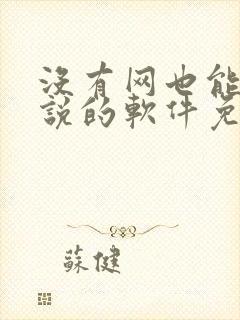 没有网也能
說的軟件免
蘇健